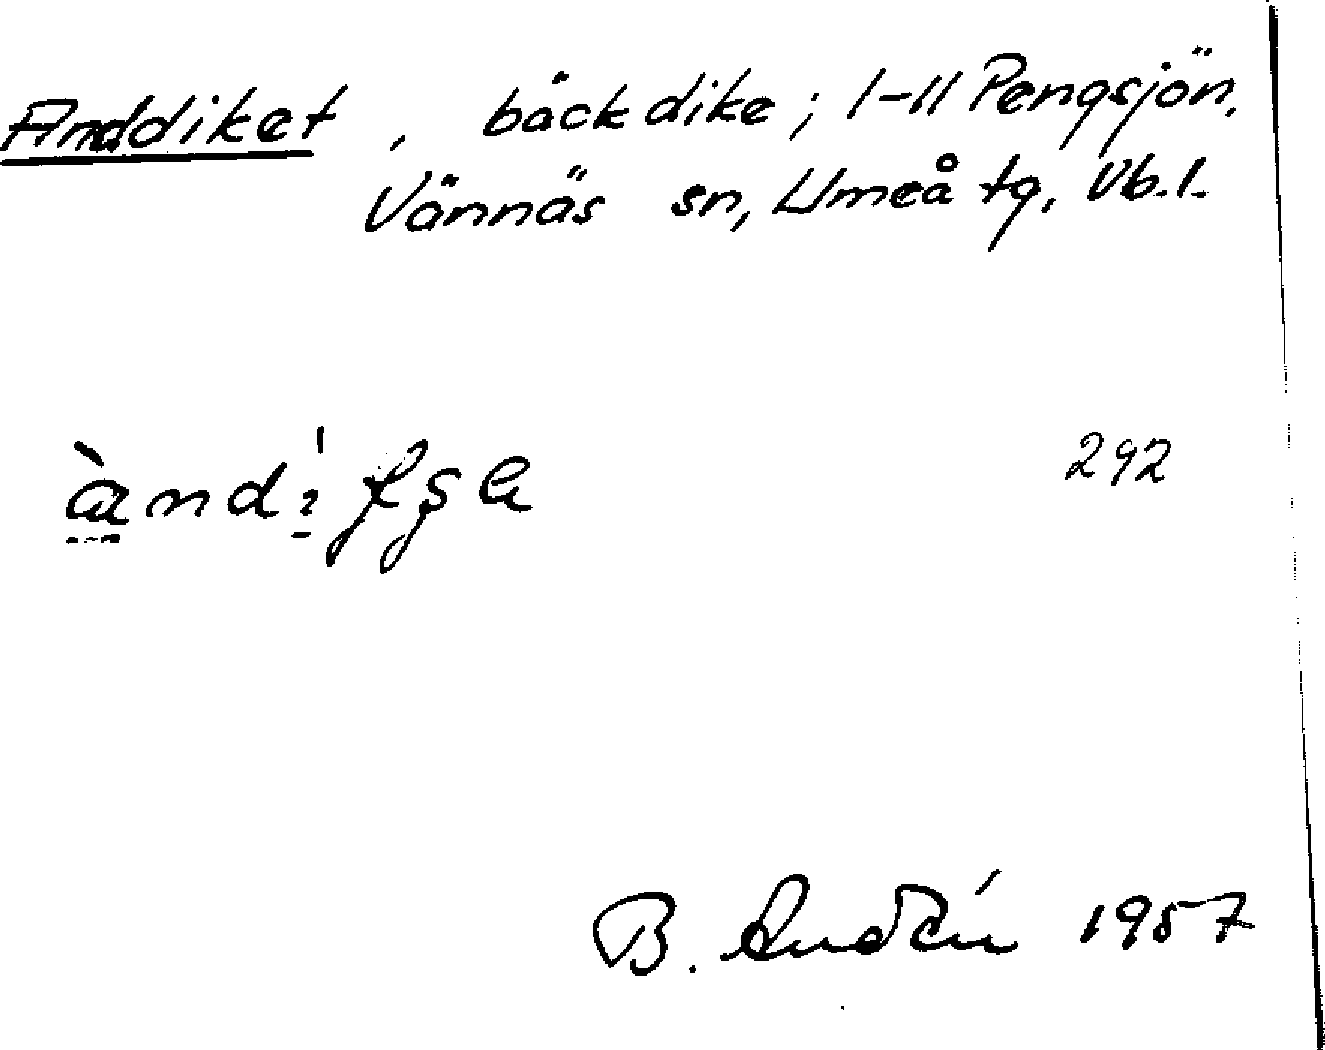 Anddiket, bäckdike; 1-11 Pengsjön,
Vännäs sn, Umeå tg, Vb.l.
292
B. 1957